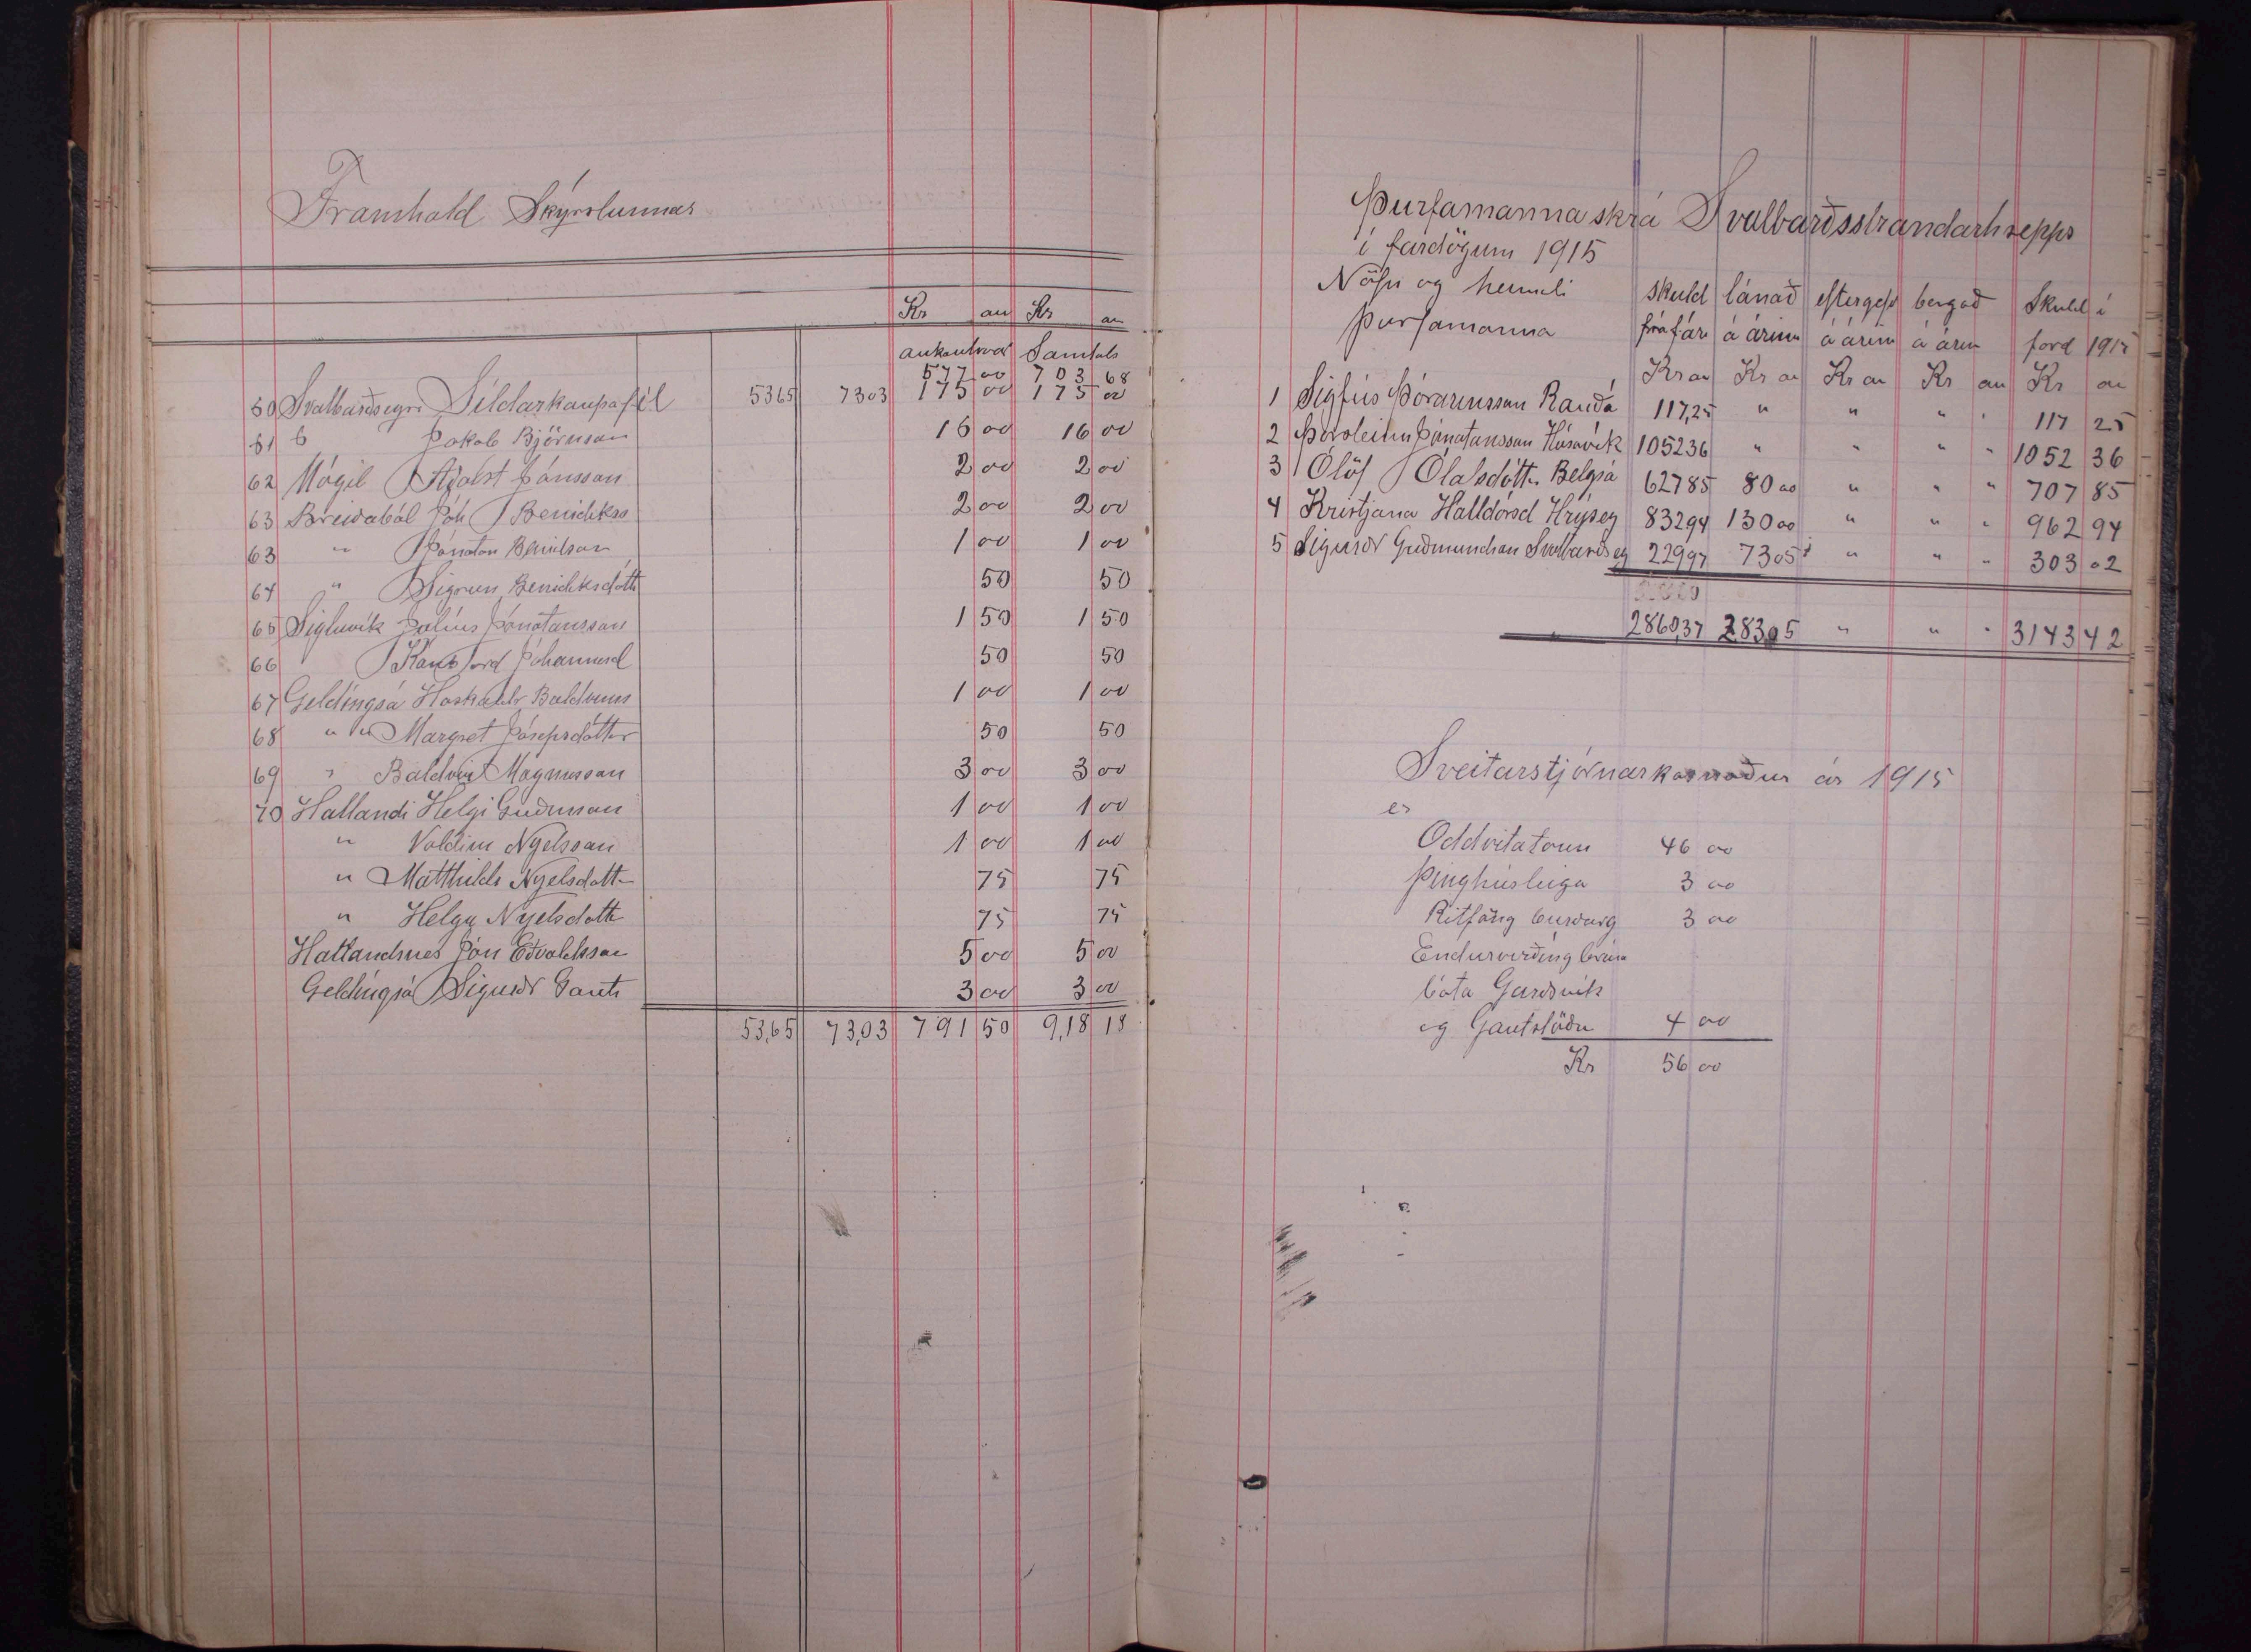 Framhald Skýrslunnar
Kr au Kr au
aukautsvar Samtals
577 00 703 68
60 Svalbarðseyri Síldarkaupafél 5365 7303 175 00 175 00
61 Jakob Björnson 16 00 16 00
62 Mógil Aðalst Jónsson 2 00 2 00
63 Breiðaból Jóh Benidiktss 2 00 2 00
63 " Jónatan 1 00 1 00
64 " Sigrun Benidiktsdótt 50 50
65 Sigluvík Július Jónatansson 1 50 1 50
66 Jóhannesd 50 50
67 Geldingsá Baldvins 1 00 1 00
68 " " Margret Jósepsdóttir 50 50
69 " Baldvin Magnusson 3 00 3 00
70 Hallandi Helgi Guðmsan 1 00 1 00
" Valdim Nyelsson 1 00 1 00
" Matthildr Nyelsdott 75 75
" Helga Nyelsdottr 75 75
Hallandsnes Jón Eðvaldsson 5 00 5 00
Geldingsá Sigurðr 3 00 3 00
53,65 73,03 791 50 9,18 18
Þurfamannaskrá Svalbarðsstrandarhrepps
í fardögum 1915
Nöfn og heimili skuld lánað eftirgefi borgað Skuld í
þurfamanna frá f ári á árinu á árinu á árin fard 1915
Kr au Kr au Kr au Kr au Kr au
1 Sigfús Þórarinsson Rauðá 117,25 " " " " 117 25
2 Þorsteinn Jónatansson Húsavík 105236 " " " " 1052 36
3 Ólöf Ólafsdóttr Belgsá 62785 80 00 " " " 707 85
4 Kristjana Halldórsd Hrísey 83294 130 00 " " " 962 94
5 Sigurðr Guðmundsson Svalbarðsey 22997 7305 " " " 303 02
2860,37 283,05 " " " 3143 42
Sveitarstjórnarkosnaður ár 1915
er
Oddvitalaun 46 00
Þinghúsleiga 3 00
Ritföng 3 00
Endurvirðing
báta Garðsvík
og 4 00
Kr 56 00